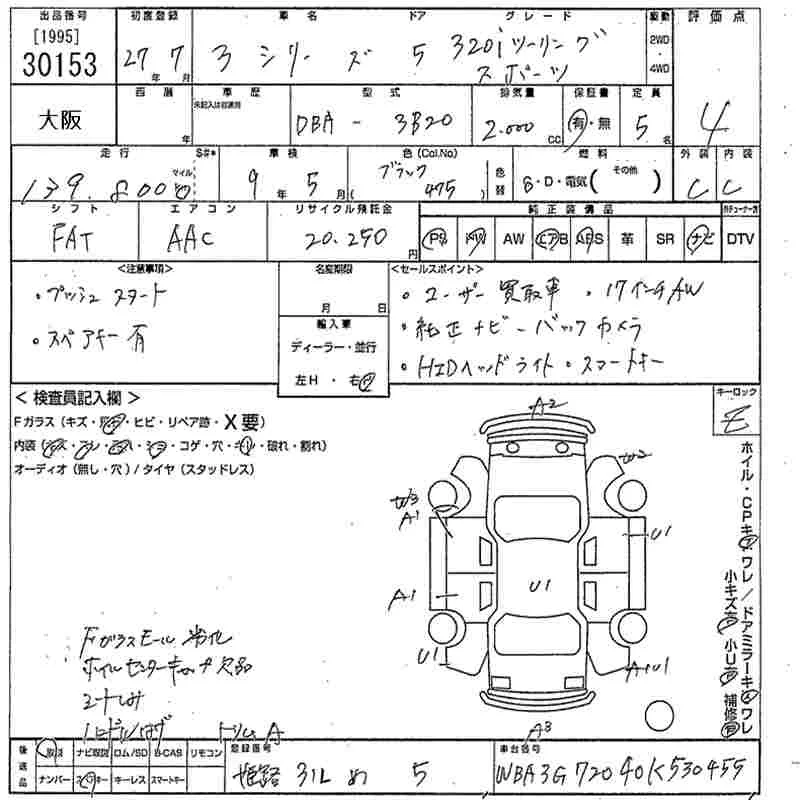 出品番号 初度登録 車名 ドア グレード 駆動 評価点
[1995]
30153 27年 7月 3 シリーズ 5 320iツーリング スポーツ 2WD 4WD 4
大阪 西暦 年 車歴 未記入は自家用 型式 DBA - 3B20 排気量 2.000 cc 保証書 有・無 定員 5名
走行 S#* 車検 色(Col.No) 色替 燃料 外装 内装
139.800 マイル 9年 5月 ブラック (475) G・D・電気( その他 ) C C
シフト エアコン リサイクル預託金 純正装備品
FAT AAC 20.250円 PS PW AW エアB ABS 革 SR ナビ DTV
<注意事項>
・プッシュスタート
・スペアキー有
名変期限
月 日
輸入車
ディーラー・並行
左H・右H
<セールスポイント>
・ユーザー買取車 ・17インチAW
・純正ナビ-バックカメラ
・HIDヘッドライト・スマートキー
<検査員記入欄>
Fガラス(キズ・ ・ヒビ・リペア跡・X要)
内装( ・コゲ・穴・ ・破れ・割れ)
オーディオ(無し・穴)/タイヤ(スタッドレス)
キーロック
ホイル・CPキズワレ/ドアミラーキズワレ
小キズ有 小U有 補修有
A2
W2
W3
A1
U1
A1
U1
U1
AU1
A3
Fガラスモール劣化
ホイルセンターキャップ欠品
シートしみ
ハンドルはげ トリムA
後送品 取説 ナビ取説 ロム/SD B-CAS リモコン
ナンバー スペアキー キーレス スマートキー
登録番号
姫路 31L め 5
車台番号
WBA3G72040K530455